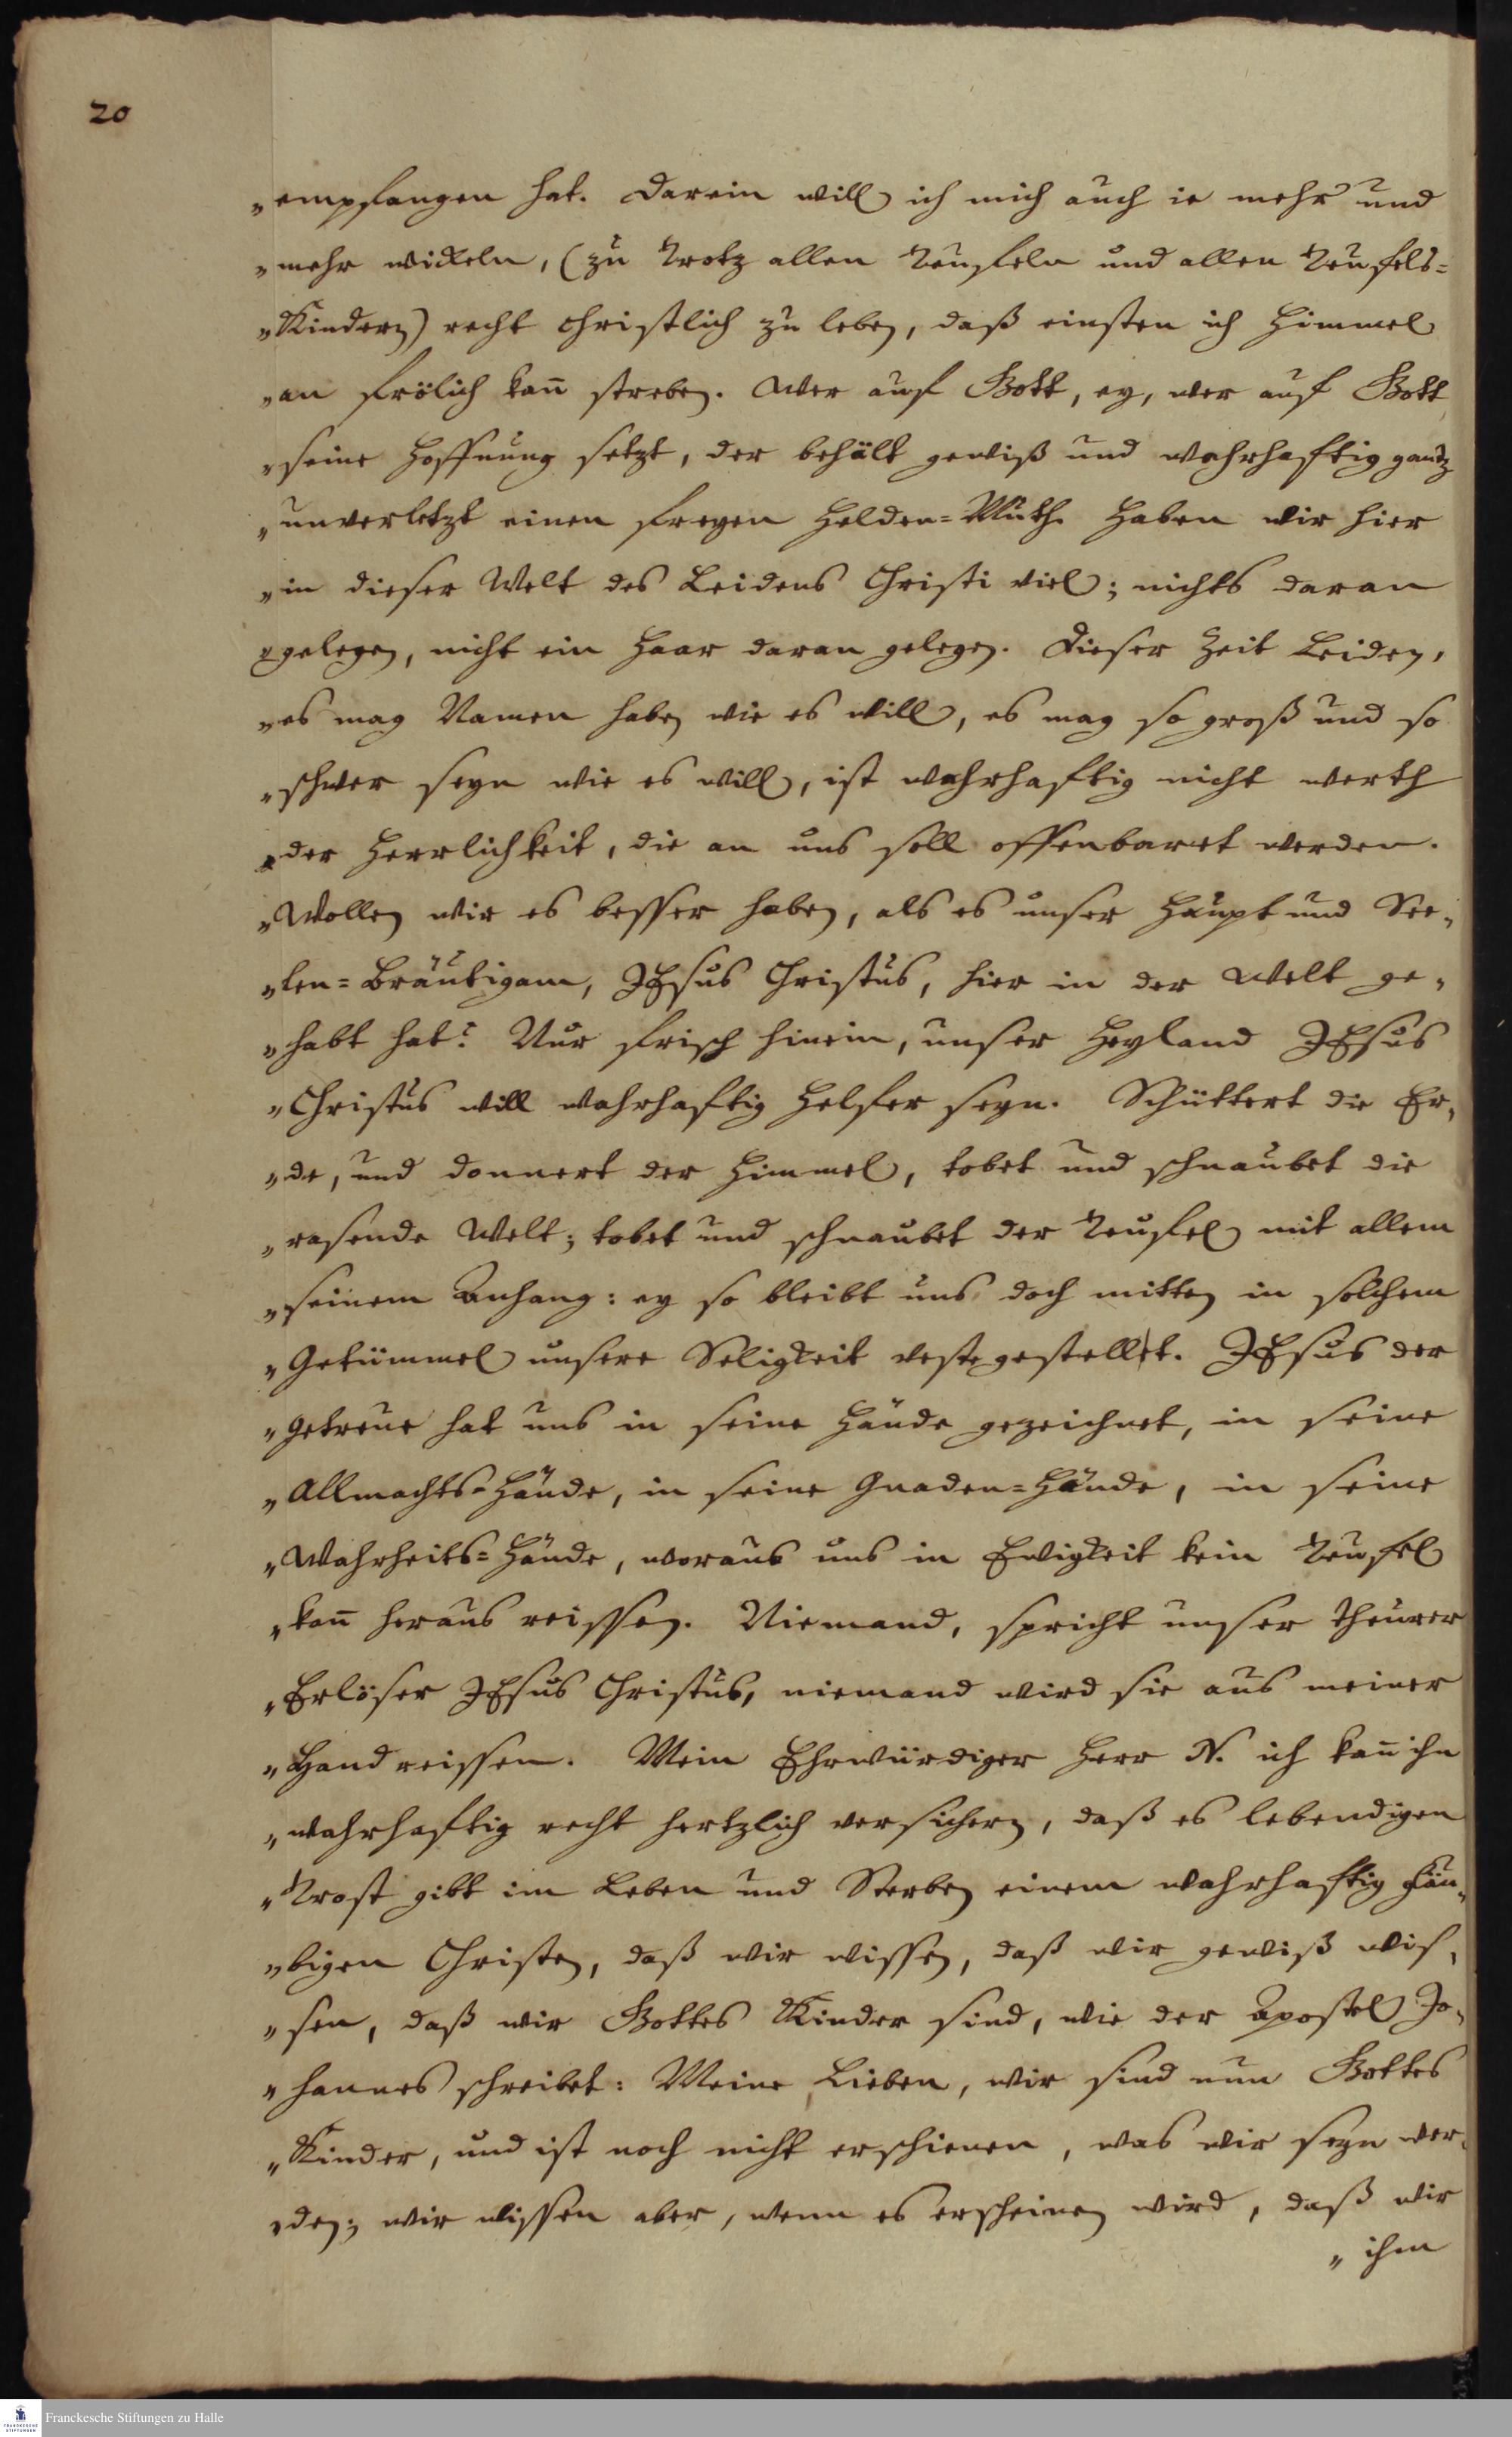 20
„empfangen hat. Darein will ich mich auch ie mehr und
„mehr wickeln, (zu Trotz allen Teufeln und allen Teufels=
„Kindern) recht christlich zu leben, daß einsten ich Himmel
„an frölich kan̄ streben. Wer auf Gott, ey, wer auf Gott
„seine Hoffnung setzt, der behält gewiß und wahrhaftig gantz
„unverletzt einen freyen Helden=Muth. Haben wir hier
„in dieser Welt des Leidens Christi viel; nichts daran
„gelegen, nicht ein Haar daran gelegen. Dieser Zeit Leiden,
„es mag Namen haben wie es will, es mag so groß und so
„schwer seyn wie es will, ist wahrhaftig nicht werth
„der Herrlichkeit, die an uns soll offenbaret werden.
„Wollen wir es besser haben, als es unser Haupt und See-
„len=Bräutigam, JEsus Christus, hier in der Welt ge-
„habt hat? Nur frisch hinein, unser Heyland JEsus
„Christus will wahrhaftig Helfer seyn. Schüttert die Er-
„de, und donnert der Himmel, tobet und schnaubet die
„rasende Welt; tobet und schnaubet der Teufel mit allem
„seinem Anhang: ey so bleibt uns doch mitten in solchem
„Getümmel unsere Seligkeit veste gestellet. JEsus der
„Getreue hat uns in seine Hände gezeichnet, in seine
„Allmachts=Hände, in seine Gnaden=Hände, in seine
„Wahrheits=Hände, woraus uns in Ewigkeit kein Teufel
„kan̄ heraus reissen. Niemand, spricht unser theurer
„Erlöser JEsus Christus, niemand wird sie aus meiner
„Hand reissen. Mein Ehrwürdiger Herr N. ich kan̄ ihn
„wahrhaftig recht hertzlich versichern, daß es lebendigen
„Trost gibt im Leben und Sterben einem wahrhaftig gläu-
„bigen Christen, daß wir wissen, daß wir gewiß wis-
„sen, daß wir Gottes Kinder sind, wie der Apostel Jo-
„hannes schreibet: Meine Lieben, wir sind nun Gottes
„Kinder, und ist noch nicht erschienen, was wir seyn wer-
„den; wir wissen aber, wenn es erscheinen wird, daß wir
„ihm
FRANCKESCHE STIFTUNGEN
Franckesche Stiftungen zu Halle